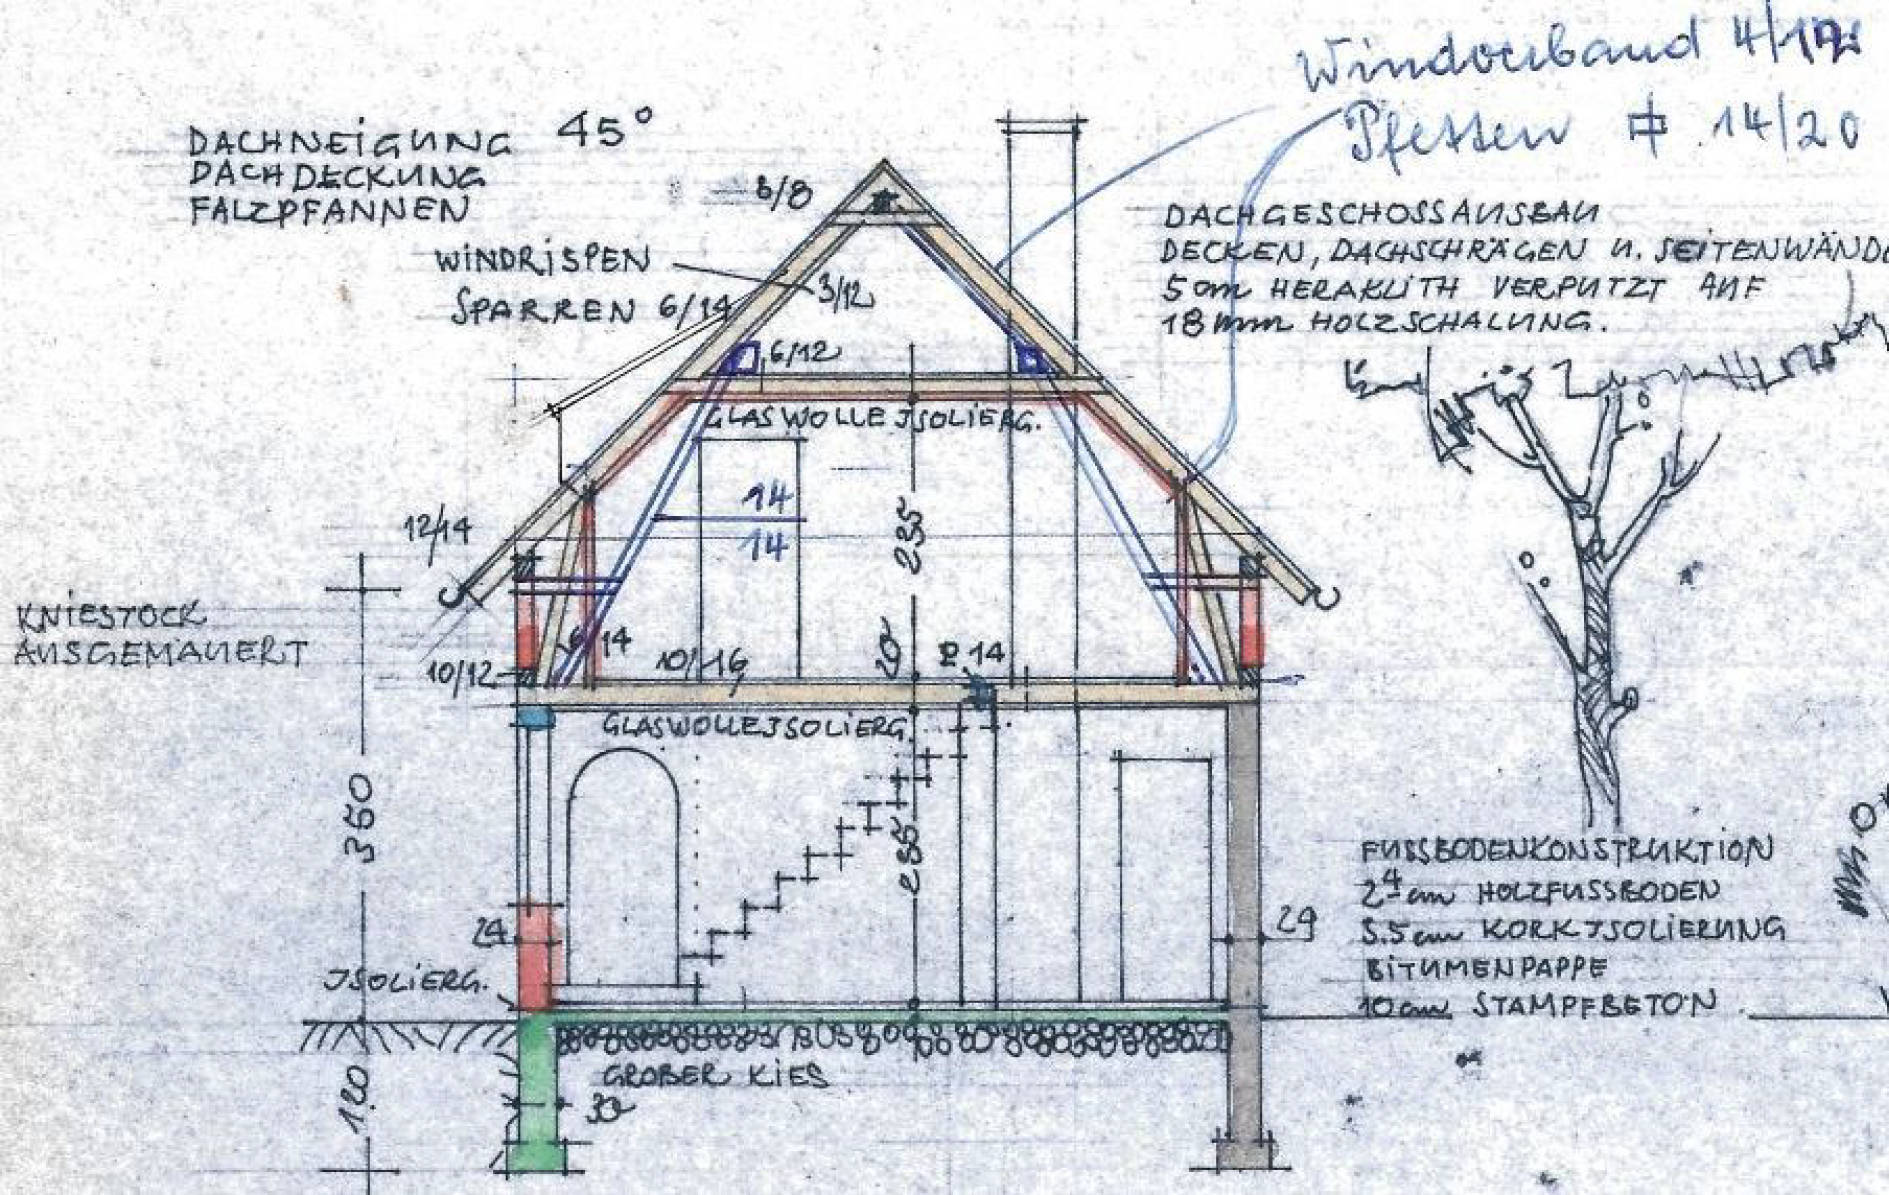 Windverband 4/12
Pfetten # 14/20
DACHNEIGUNG 45°
DACHDECKUNG
FALZPFANNEN
8/8
WINDRISPEN
SPARREN 6/14
3/12
6/12
DACHGESCHOSSAUSBAU
DECKEN, DACHSCHRÄGEN U. SEITENWÄNDE
5 cm HERAKLITH VERPUTZT AUF
18 mm HOLZSCHALUNG.
GLASWOLLE JSOLIERG.
14
14
235
12/14
KNIESTOCK
AUSGEMAUERT
10/12
14
10/16
20
P 14
GLASWOLLEJSOLIERG.
360
235
24
29
JSOLIERG.
FUSSBODENKONSTRUKTION
2⁴ cm HOLZFUSSBODEN
3.5 cm KORKJSOLIERUNG
BITUMENPAPPE
10 cm STAMPFBETON
GROBER KIES
30
120